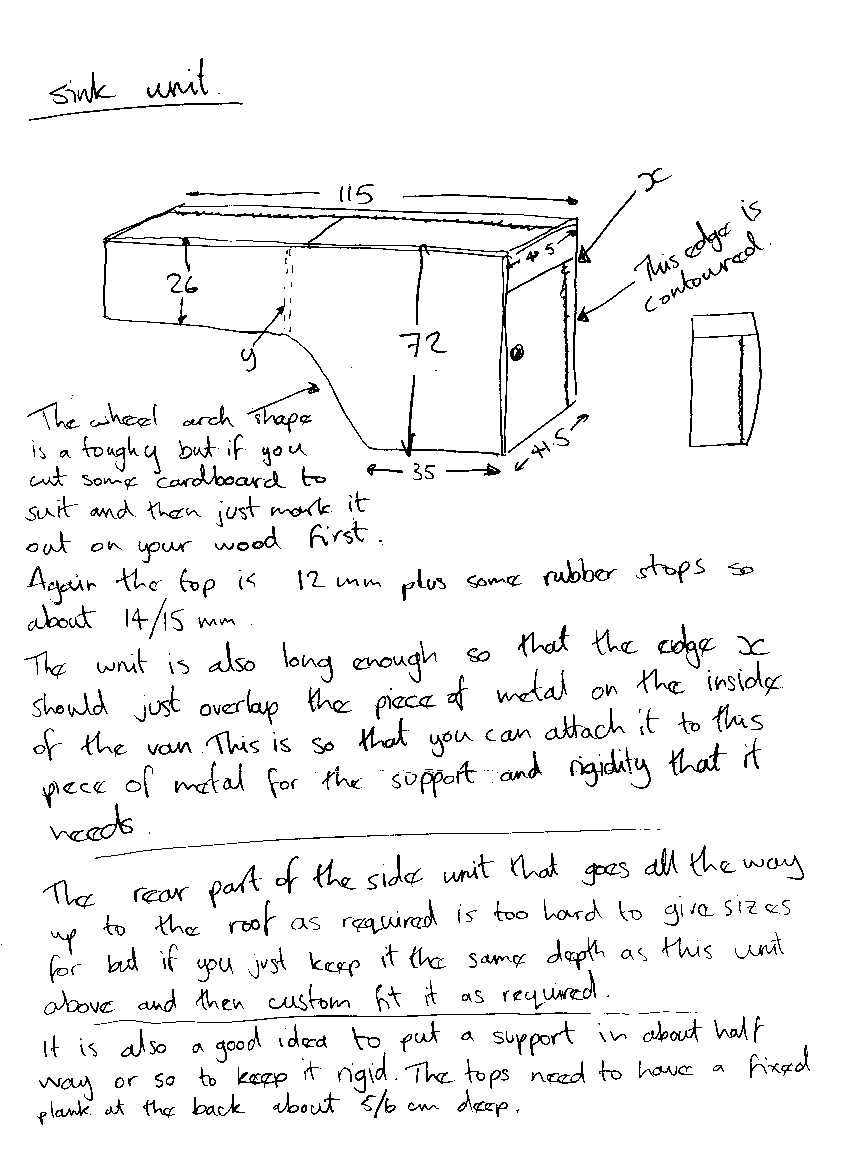 sink unit.
115
x
This edge is
contoured.
45
26
72
y
35
41.5
The wheel arch shape
is a toughy but if you
cut some cardboard to
suit and then just mark it
out on your wood first.
Again the top is 12 mm plus some rubber stops so
about 14/15 mm.
The unit is also long enough so that the edge x
should just overlap the piece of metal on the inside
of the van. This is so that you can attach it to this
piece of metal for the support and rigidity that it
needs.
The rear part of the side unit that goes all the way
up to the roof as required is too hard to give sizes
for but if you just keep it the same depth as this unit
above and then custom fit it as required.
It is also a good idea to put a support in about half
way or so to keep it rigid. The tops need to have a fixed
plank at the back about 5/6 cm deep.